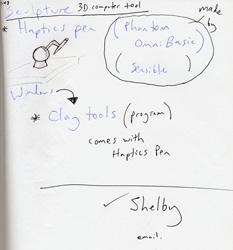 Sculpture 3D computer tool
make by
* Haptics pen (Phantom
Omni Basic)
(Sensible)
Windows
* Clay tools (program)
comes with
Haptics Pen
✓ Shelby
email.